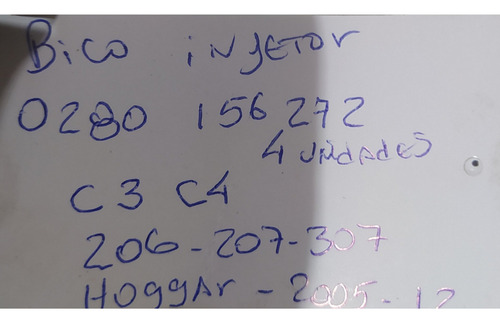 Bico injetor
0280 156 272
4 unidades
C3 C4
206-207-307
HOggAr - 2005-12